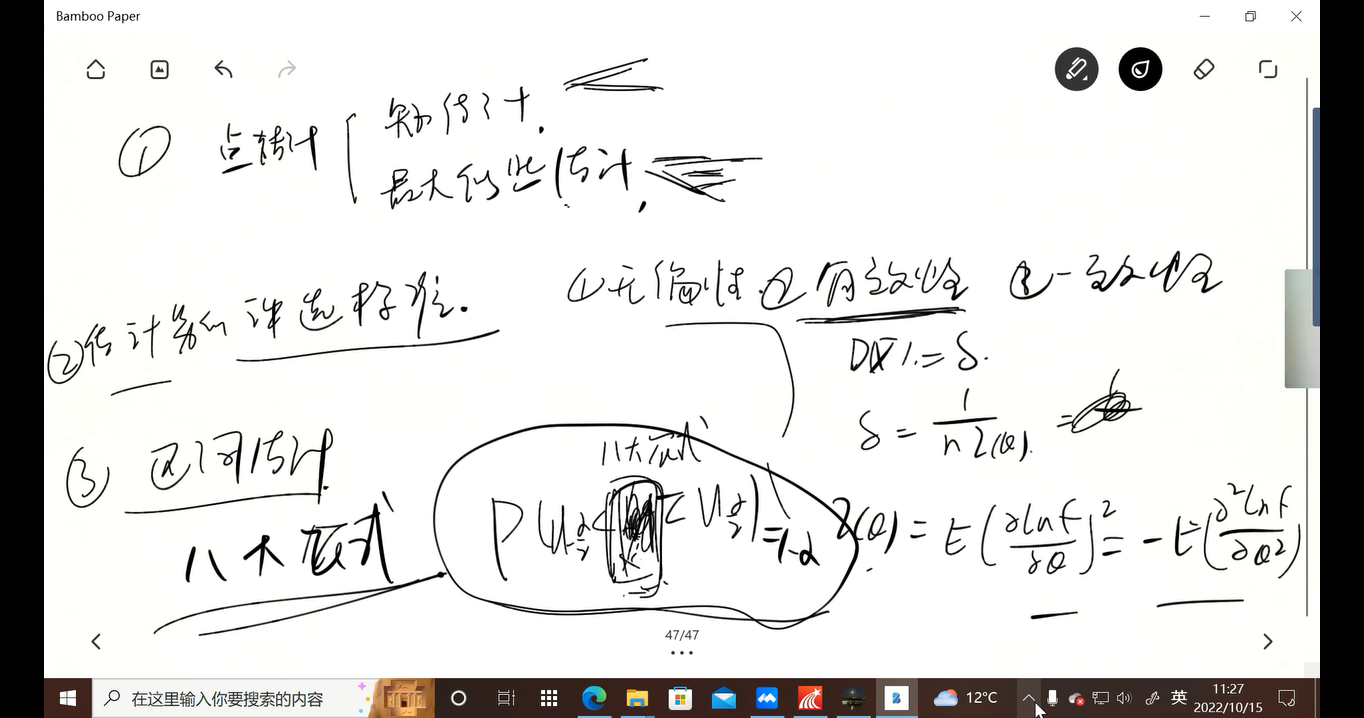 Bamboo Paper
① 点估计
矩估计.
最大似然估计,
①无偏性.②有效性 ③一致性
②估计量的评选标准.
D(X)=δ.
δ = 1/(n I(θ)) =
③ 区间估计.
八大应式
八大应式
P(U α/2 < < U α/2)=1-α
I(θ) = E(∂lnf/∂θ)² = -E(∂²lnf/∂θ²)
47/47
在这里输入你要搜索的内容
12°C
英
11:27
2022/10/15